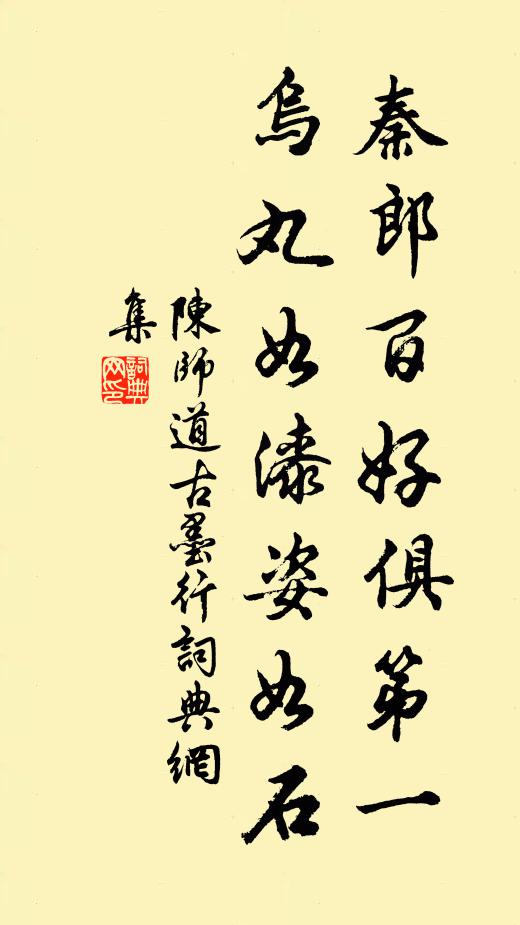 秦郎百好俱第一
烏丸如漆姿如石
陳師道古墨行詞典網
集
詞典網印